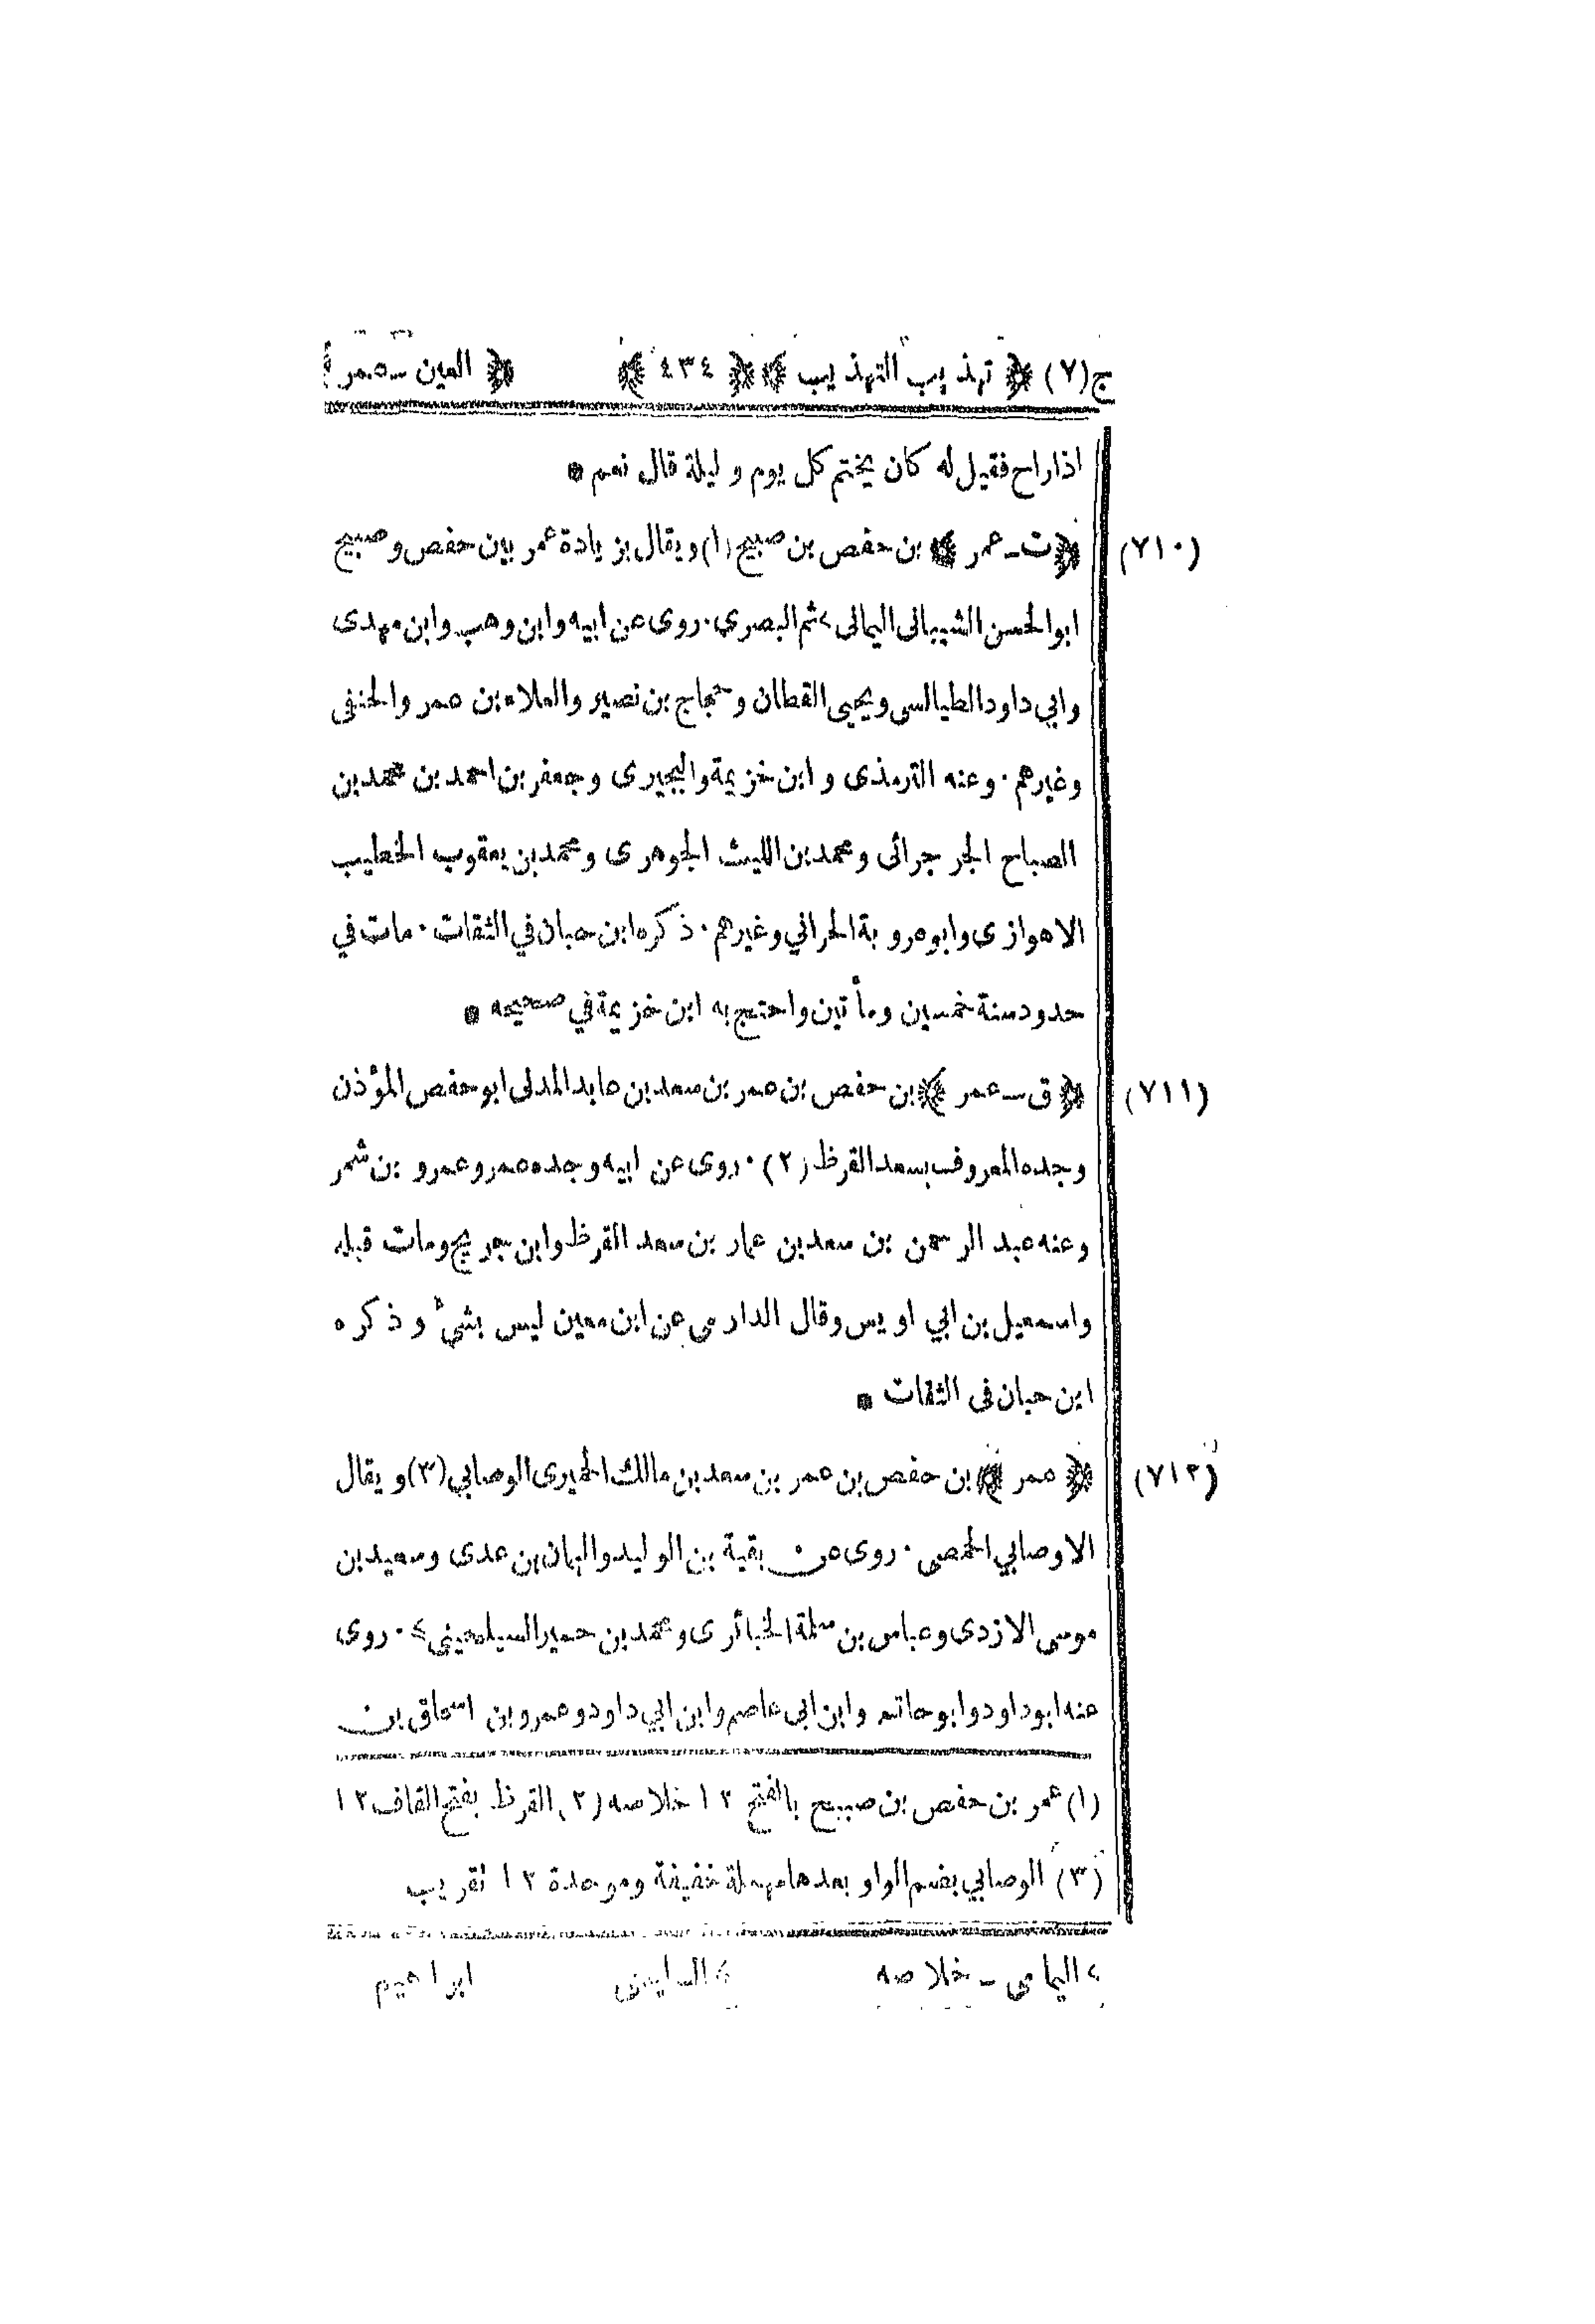 ج(٧) ﴿ تهذيب التهذيب ﴾ ﴿ ٤٣٤ ﴾ ﴿ العين - عمر
اذا راح فقيل له كان يختم كل يوم و ليلة قال نعم *
(٧١٠) ﴿ ت - عمر ﴾ بن حفص بن صبيح (١) و يقال بزيادة عمر بين حفص و صبيح
ابو الحسن الشيبانى اليمانى ٤ ثم البصري · روى عن ابيه و ابن وهب و ابن مهدى
و ابي داود الطيالسى و يحيى القطان و حجاج بن نصير والعلاء بن عمر و الحنفى
وغيرهم · وعنه الترمذى و ابن خزيمة والبجيرى و جعفر بن احمد بن محمد بن
الصباح الجرجرائى و محمد بن الليث الجوهرى و محمد بن يعقوب الخطيب
الاهوازى و ابوعروبة الحراني وغيرهم · ذكره ابن حبان في الثقات · مات في
حدود سنة خمسين و مأتين واحتج به ابن خزيمة في صحيحه *
(٧١١) ﴿ ق - عمر ﴾ بن حفص بن عمر بن سعد بن عابد المدنى ابو حفص المؤذن
و جده المعروف بسعد القرظ (٢) · روى عن ابيه و جده عمر و عمرو بن شمر
و عنه عبد الرحمن بن سعد بن عمار بن سعد القرظ و ابن جريج و مات قبله
واسمعيل بن ابي اويس وقال الدارمى عن ابن معين ليس بشئ و ذكره
ابن حبان فى الثقات *
(٧١٢) ﴿ عمر ﴾ بن حفص بن عمر بن سعد بن مالك الحميرى الوصابي (٣) و يقال
الاوصابي الحمصى · روى عن بقية بن الوليد و اليمان بن عدى و سعيد بن
موسى الازدى و عباس بن سلمة الخبائرى و محمد بن حمير السيلحينى ٤ · روى
عنه ابو داود و ابو حاتم و ابن ابى عاصم و ابن ابي داود و عمرو بن اسحاق بن
(١) عمر بن حفص بن صبيح بالفتح ١٢ خلاصه (٢) القرظ بفتح القاف ١٢
(٣) الوصابي بضم الواو بعدها مهملة خفيفة وموحدة ١٢ تقريب
٤ اليمامى - خلاصه ابراهيم